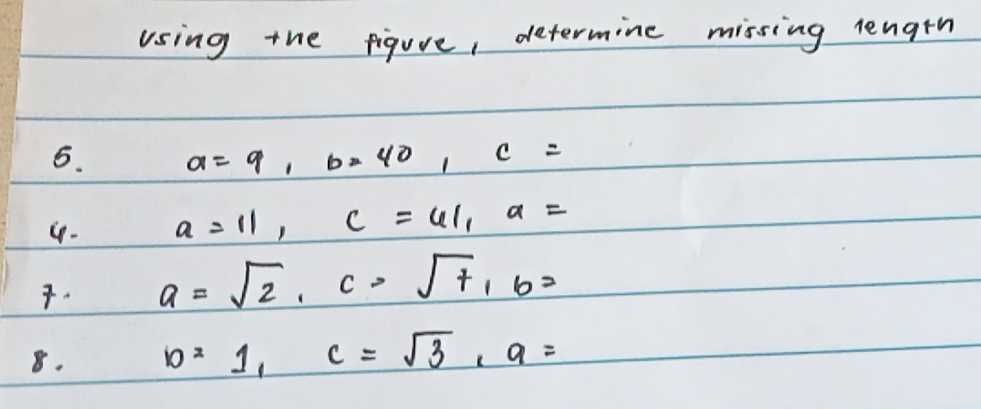 using the figure, determine missing length
5. a = 9, b = 40, c =
4. a = 11, c = 41, a =
7. a = √2, c = √7, b =
8. b = 1, c = √3, a =